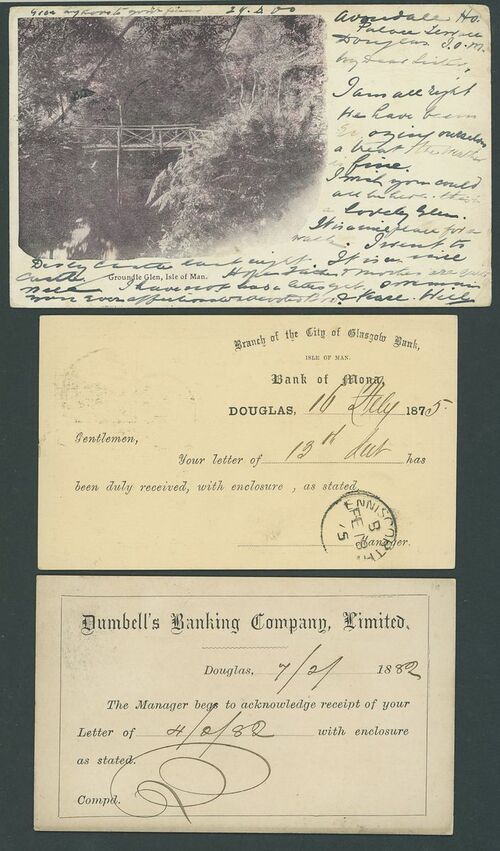 Give my love to your friend 24.8.00
Avondale Ho.
Palace Terrace
Douglas I.O.M.
My Dear Sister,
I am all right
We have been
ourselves
a treat the weather
is fine.
I wish you could
all be here. this
a Lovely Glen.
It is a nice place for a
walk. I went to
Derby Castle last night. It is a nice
Castle Groundle Glen, Isle of Man. Hope Dad & mother are quite
well I have not had a letter yet, I remain
your ever affectionate
Branch of the City of Glasgow Bank,
ISLE OF MAN.
Bank of Mona,
DOUGLAS, 16 Feby 1875.
Gentlemen,
Your letter of 13th Inst has
been duly received, with enclosure , as stated
Manager.
ENNISCORTHY
B
FE 18
75
Dumbell's Banking Company, Limited.
Douglas, 7/2/ 1882
The Manager begs to acknowledge receipt of your
Letter of 4/2/82 with enclosure
as stated.
Compd.